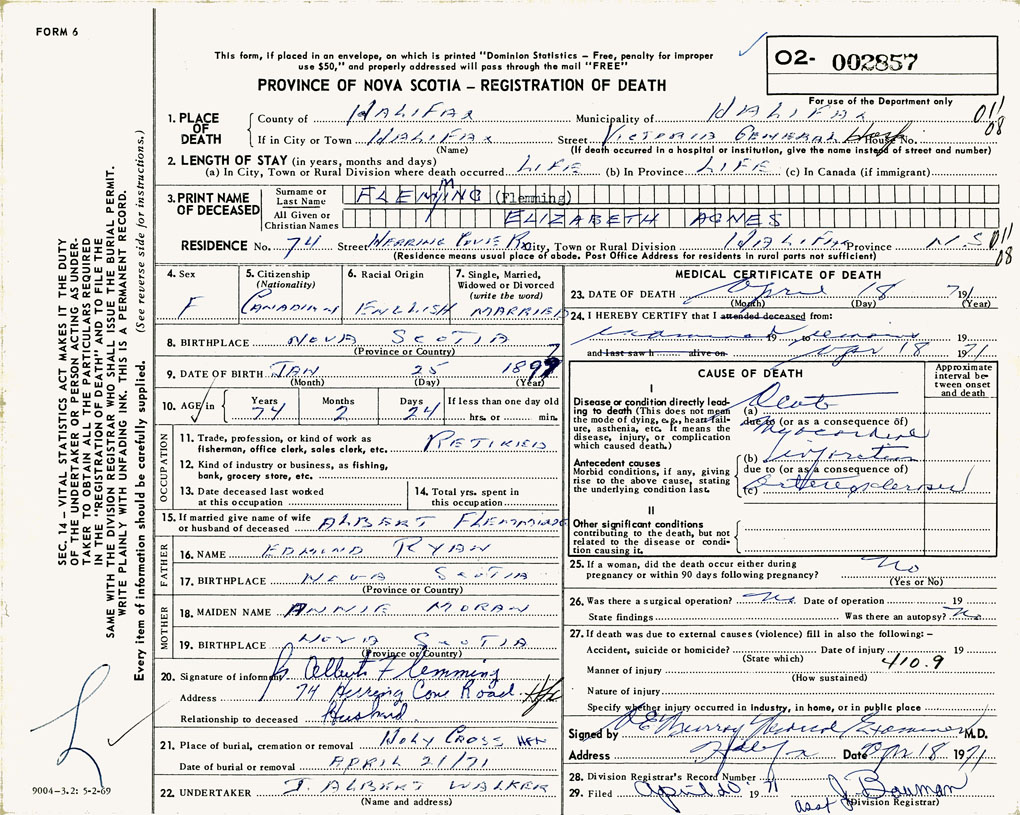 FORM 6
This form, if placed in an envelope, on which is printed "Dominion Statistics – Free, penalty for improper
use $50," and properly addressed will pass through the mail "FREE"
O2- 002857
PROVINCE OF NOVA SCOTIA – REGISTRATION OF DEATH
For use of the Department only
1. PLACE OF DEATH
County of HALIFAX Municipality of HALIFAX 011
If in City or Town HALIFAX Street VICTORIA GENERAL Hosp House No. 08
(Name) (If death occurred in a hospital or institution, give the name instead of street and number)
2. LENGTH OF STAY (in years, months and days)
(a) In City, Town or Rural Division where death occurred LIFE (b) In Province LIFE (c) In Canada (if immigrant)
3. PRINT NAME OF DECEASED
Surname or Last Name FLEMMING (Flemming)
All Given or Christian Names ELIZABETH AGNES
RESIDENCE No. 74 Street HERRING COVE Rd City, Town or Rural Division HALIFAX Province N.S 011
(Residence means usual place of abode. Post Office Address for residents in rural parts not sufficient) 08
4. Sex F
5. Citizenship (Nationality) CANADIAN
6. Racial Origin ENGLISH
7. Single, Married, Widowed or Divorced (write the word) MARRIED
8. BIRTHPLACE NOVA SCOTIA
(Province or Country)
9. DATE OF BIRTH JAN 25 1897
(Month) (Day) (Year)
10. AGE in Years 74 Months 2 Days 24 If less than one day old
hrs. or min.
OCCUPATION
11. Trade, profession, or kind of work as fisherman, office clerk, sales clerk, etc. RETIRED
12. Kind of industry or business, as fishing, bank, grocery store, etc.
13. Date deceased last worked at this occupation
14. Total yrs. spent in this occupation
15. If married give name of wife or husband of deceased ALBERT FLEMMING
FATHER
16. NAME EDMUND RYAN
17. BIRTHPLACE NOVA SCOTIA
(Province or Country)
MOTHER
18. MAIDEN NAME ANNIE MORAN
19. BIRTHPLACE NOVA SCOTIA
(Province or Country)
20. Signature of informant Albert Flemming
Address 74 Herring Cove Road Hfx
Relationship to deceased Husbnd.
21. Place of burial, cremation or removal HOLY CROSS HFX
Date of burial or removal APRIL 21/71
22. UNDERTAKER J. ALBERT WALKER
(Name and address)
MEDICAL CERTIFICATE OF DEATH
23. DATE OF DEATH April 18 1971
(Month) (Day) (Year)
24. I HEREBY CERTIFY that I attended deceased from:
examined 19 to remains
and last saw h alive on Apr 18 1971
CAUSE OF DEATH
Approximate interval between onset and death
I
Disease or condition directly leading to death (This does not mean the mode of dying, e.g., heart failure, asthenia, etc. It means the disease, injury, or complication which caused death.)
(a) Acute
due to (or as a consequence of)
Myocardial
Antecedent causes
Morbid conditions, if any, giving rise to the above cause, stating the underlying condition last.
(b) Infarction
due to (or as a consequence of)
(c) Arteriosclerosis
II
Other significant conditions contributing to the death, but not related to the disease or condition causing it.
25. If a woman, did the death occur either during pregnancy or within 90 days following pregnancy? No
(Yes or No)
26. Was there a surgical operation? No Date of operation 19
State findings Was there an autopsy? No
27. If death was due to external causes (violence) fill in also the following: –
Accident, suicide or homicide? Date of injury 19
(State which) 410.9
Manner of injury
(How sustained)
Nature of injury
Specify whether injury occurred in industry, in home, or in public place
Signed by Murray Medical Examiner M.D.
Address Halifax Date Apr 18 1971
28. Division Registrar's Record Number
29. Filed April 20 1971 asst J. Bauman
(Division Registrar)
SEC. 14 – VITAL STATISTICS ACT MAKES IT THE DUTY
OF THE UNDERTAKER OR PERSON ACTING AS UNDER-
TAKER TO OBTAIN ALL THE PARTICULARS REQUIRED
IN THE "REGISTRATION OF DEATH" AND TO FILE THE
SAME WITH THE DIVISION REGISTRAR WHO SHALL ISSUE THE BURIAL PERMIT.
WRITE PLAINLY WITH UNFADING INK. THIS IS A PERMANENT RECORD.
Every item of information should be carefully supplied. (See reverse side for instructions.)
9004-3.2: 5-2-69